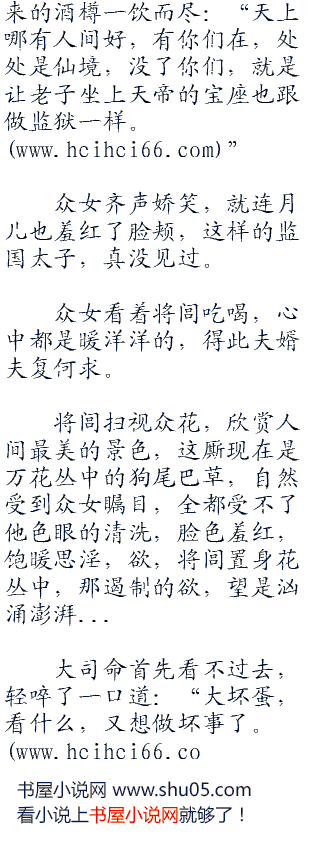 来的酒樽一饮而尽：“天上
哪有人间好，有你们在，处
处是仙境，没了你们，就是
让老子坐上天帝的宝座也跟
做监狱一样。
(www.hcihci66.com)”
众女齐声娇笑，就连月
儿也羞红了脸颊，这样的监
国太子，真没见过。
众女看着将闾吃喝，心
中都是暖洋洋的，得此夫婿
夫复何求。
将闾扫视众花，欣赏人
间最美的景色，这厮现在是
万花丛中的狗尾巴草，自然
受到众女瞩目，全都受不了
他色眼的清洗，脸色羞红，
饱暖思淫，欲，将闾置身花
丛中，那遏制的欲，望是汹
涌澎湃...
大司命首先看不过去，
轻啐了一口道：“大坏蛋，
看什么，又想做坏事了。
(www.hcihci66.co
书屋小说网 www.shu05.com
看小说上书屋小说网就够了！